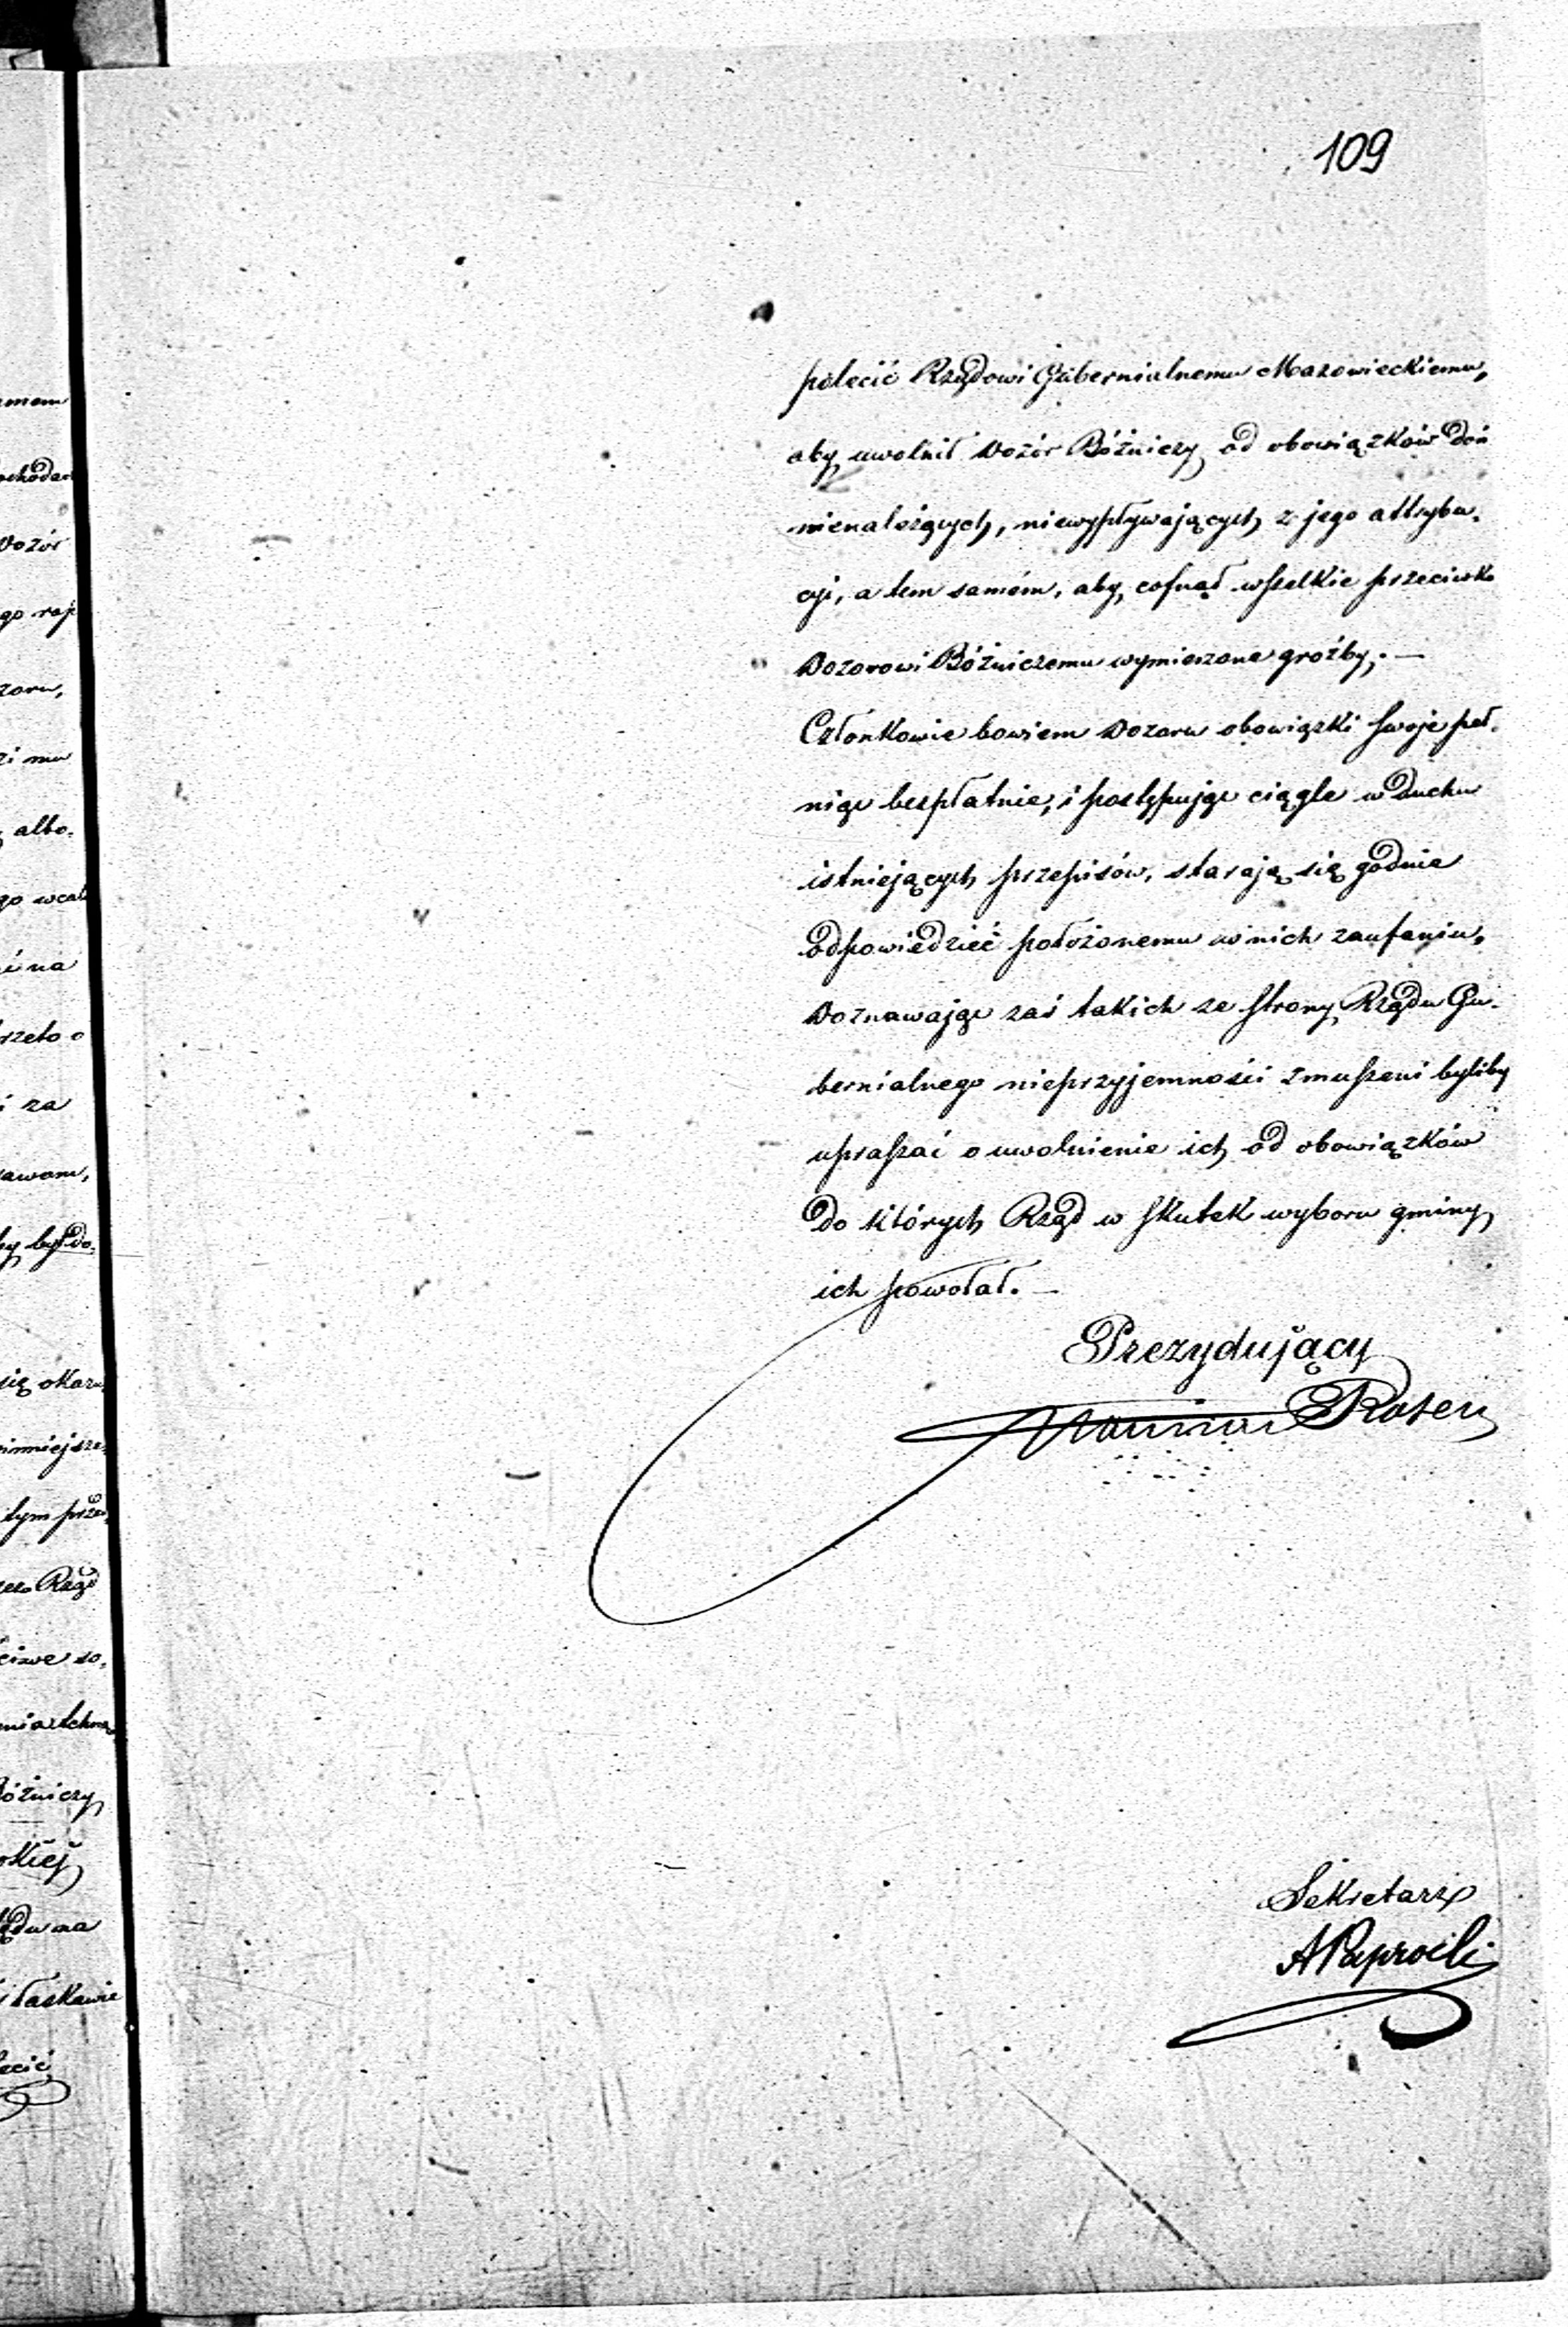 109
polecić Rządowi Gubernialnemu Mazowieckiemu,
aby uwolnił Dozór Bóżniczy od obowiązków doń
nienależących, niewypływających z jego attrybu-
cyi, a tem samém, aby cofnął wszelkie przeciwko
Dozorowi Bóżniczemu wymierzone groźby. —
Członkowie bowiem Dozoru obowiązki swoje peł-
niąc bezpłatnie, i postępując ciągle w duchu
istniejących przepisów, starają się godnie
odpowiedzieć położonemu w nich zaufaniu,
Doznawając zaś takich ze strony Rządu Gu-
bernialnego nieprzyjemności zmuszeni byliby
upraszać o uwolnienie ich od obowiązków
do których Rząd w skutek wyboru gminy
ich powołał. —
Prezydujący
Rosen
Sekretarz
A Paprocki
mem
Dozór
zoru,
albo-
go wcale
na
rzeto o
i za
się okaza
tym
Rząd
Bóżniczy
łaskawie